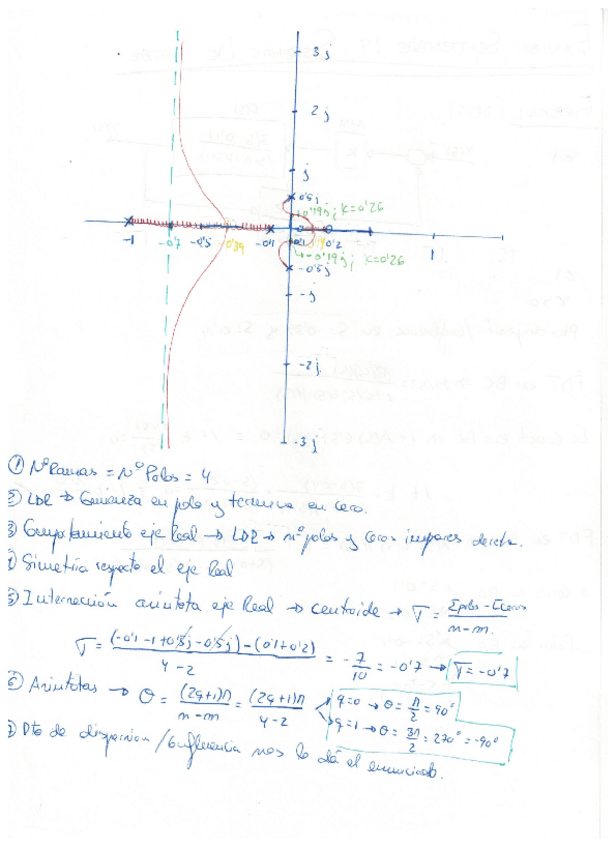 3j
2j
j
0'5j
0'19j; K=0'26
-1 -0'7 -0'5 -0'39 -0'1 0'1 0'2 1
-0'19j; K=0'26
-0'5j
-j
-2j
-3j
① Nº Ramas = Nº Polos = 4
② LDR → Comienza en polo y termina en cero.
③ Comportamiento eje Real → LDR → nº polos y ceros impares derecha.
④ Simetría respecto el eje Real
⑤ Intersección asíntota eje Real → centroide → σ = (Σpolos - Σceros)/(n-m)
σ = ((-0'1-1+0'5j-0'5j)-(0'1+0'2))/(4-2) = -7/10 = -0'7 → σ=-0'7
⑥ Asíntotas → θ = (2q+1)π/(n-m) = (2q+1)π/(4-2) q=0 → θ = π/2 = 90°
q=1 → θ = 3π/2 = 270° = -90°
⑦ Pto de dispersión / confluencia nos lo dá el enunciado.